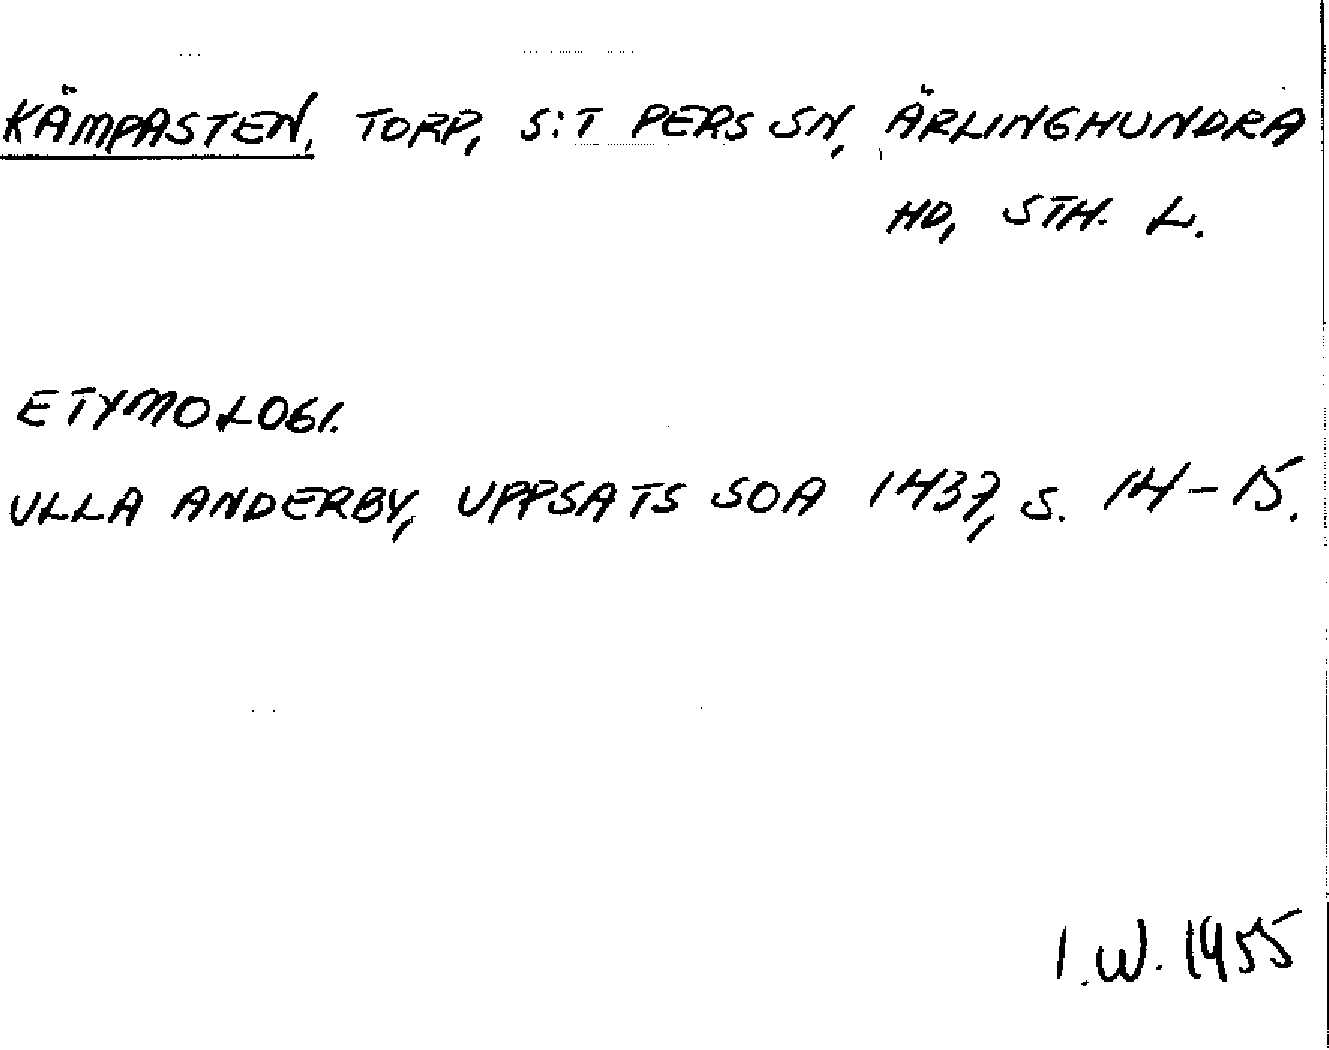 KÄMPASTEN, TORP, S:T PERS SN, ÄRLINGHUNDRA
HD, STH. L.
ETYMOLOGI.
ULLA ANDERBY, UPPSATS SOA 1437, S. 14-15.
I.W. 1955